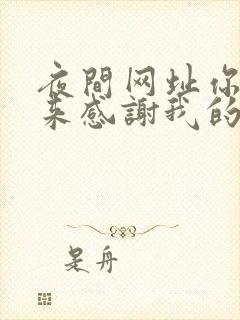 夜間网址你
来感謝我的
是舟